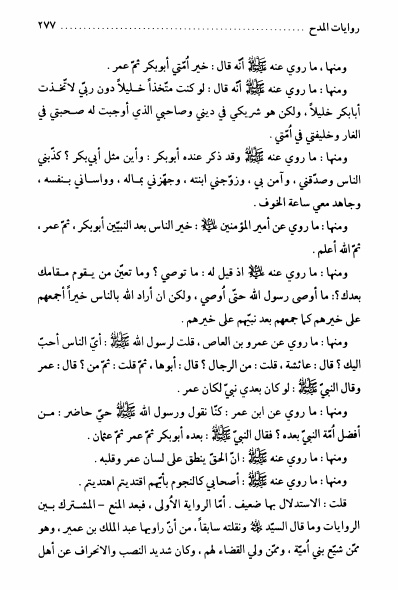 روايات المدح ........................................ ٢٧٧
ومنها ، ما روي عنه ﷺ أنّه قال : خير أُمّتي أبوبكر ثمّ عمر .
ومنها : ما روي عنه ﷺ أنّه قال : لو كنت متّخذاً خليلاً دون ربّي لاتّخذت
أبابكر خليلاً ، ولكن هو شريكي في ديني وصاحبي الذي أوجبت له صحبتي في
الغار وخليفتي في أُمّتي .
ومنها : ما روي عنه ﷺ وقد ذكر عنده أبوبكر : وأين مثل أبي‌بكر ؟ كذّبني
الناس وصدّقني ، وآمن بي ، وزوّجني ابنته ، وجهّزني بماله ، وواساني بنفسه ،
وجاهد معي ساعة الخوف .
ومنها : ما روي عن أمير المؤمنين ﵇ : خير الناس بعد النبيّين أبوبكر ، ثمّ عمر ،
ثمّ الله أعلم .
ومنها : ما روي عنه ﵇ اذ قيل له : ما توصي ؟ وما تعيّن من يقوم مقامك
بعدك ؟: ما أوصى رسول الله حتّى أُوصي ، ولكن ان أراد الله بالناس خيراً أجمعهم
على خيرهم كما جمعهم بعد نبيّهم على خيرهم .
ومنها : ما روي عن عمرو بن العاص ، قلت لرسول الله ﷺ : أيّ الناس أحبّ
اليك ؟ قال : عائشة ، قلت : من الرجال ؟ قال : أبوها ، ثمّ قلت : ثمّ من ؟ قال : عمر
وقال النبيّ ﷺ : لو كان بعدي نبيّ لكان عمر .
ومنها : ما روي عن ابن عمر : كنّا نقول ورسول الله ﷺ حيّ حاضر : من
أفضل أُمّة النبيّ بعده ؟ فقال النبيّ ﷺ : بعده أبوبكر ثمّ عمر ثمّ عثمان .
ومنها : ما روي عنه ﷺ : انّ الحقّ ينطق على لسان عمر وقلبه .
ومنها : ما روي عنه ﷺ : أصحابي كالنجوم بأيّهم اقتديتم اهتديتم .
قلت : الاستدلال بها ضعيف . أمّا الرواية الأُولى ، فبعد المنع – المشترك بين
الروايات وما قال السيّد ﵀ ونقلته سابقاً ، من أنّ راويها عبد الملك بن عمير ، وهو
ممّن شيّع بني أُميّة ، وممّن ولي القضاء لهم ، وكان شديد النصب والانحراف عن أهل